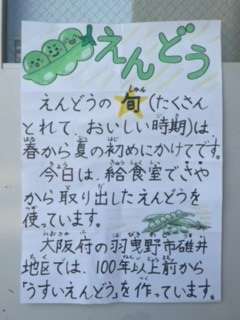 えんどう
えんどうの旬(たくさん
とれて、おいしい時期)は
春から夏の初めにかけてです。
今日は、給食室でさや
から取り出したえんどうを
使っています。
大阪府の羽曳野市碓井
地区では、100年以上前から
「うすいえんどう」を作っています。